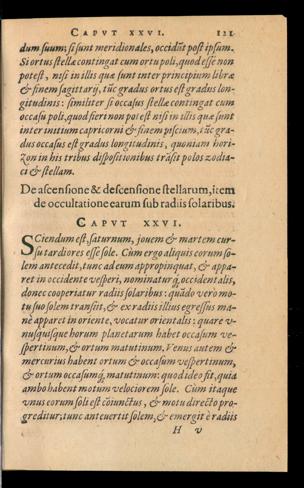 CAPVT XXVI. 121
dum suum; si sunt meridionales, occidūt post ipsum.
Si ortus stellæ contingat cum ortu poli, quod esse non
potest, nisi in illis quæ sunt inter principium libræ
& finem sagittarij, tūc gradus ortus est gradus lon-
gitudinis: similiter si occasus stellæ contingat cum
occasu poli, quod fieri non potest nisi in illis quæ sunt
inter initium capricorni & finem piscium, tūc gra-
dus occasus est gradus longitudinis, quoniam hori-
zon in his tribus dispositionibus trāsit polos zodia-
ci & stellam.
De ascensione & descensione stellarum, item
de occultatione earum sub radiis solaribus.
CAPVT XXVI.
SCiendum est, saturnum, jouem & martem cur-
su tardiores esse sole. Cum ergo aliquis eorum so-
lem antecedit, tunc ad eum appropinquat, & appa-
ret in occidente vesperi, nominatur q̃ occidentalis,
donec cooperiatur radiis solaribus: quādo vero mo-
tu suo solem transiit, & ex radiis illius egressus ma-
ne apparet in oriente, vocatur orientalis: quare v-
nusquisque horum planetarum habet occasum ve-
spertinum, & ortum matutinum. Venus autem &
mercurius habent ortum & occasum vespertinum,
& ortum occasumq́ matutinum: quod ideo fit, quia
ambo habent motum velociorem sole. Cum itaque
vnus eorum soli est cōiunctus, & motu directo pro-
greditur, tunc anteuertit solem, & emergit è radiis
H v